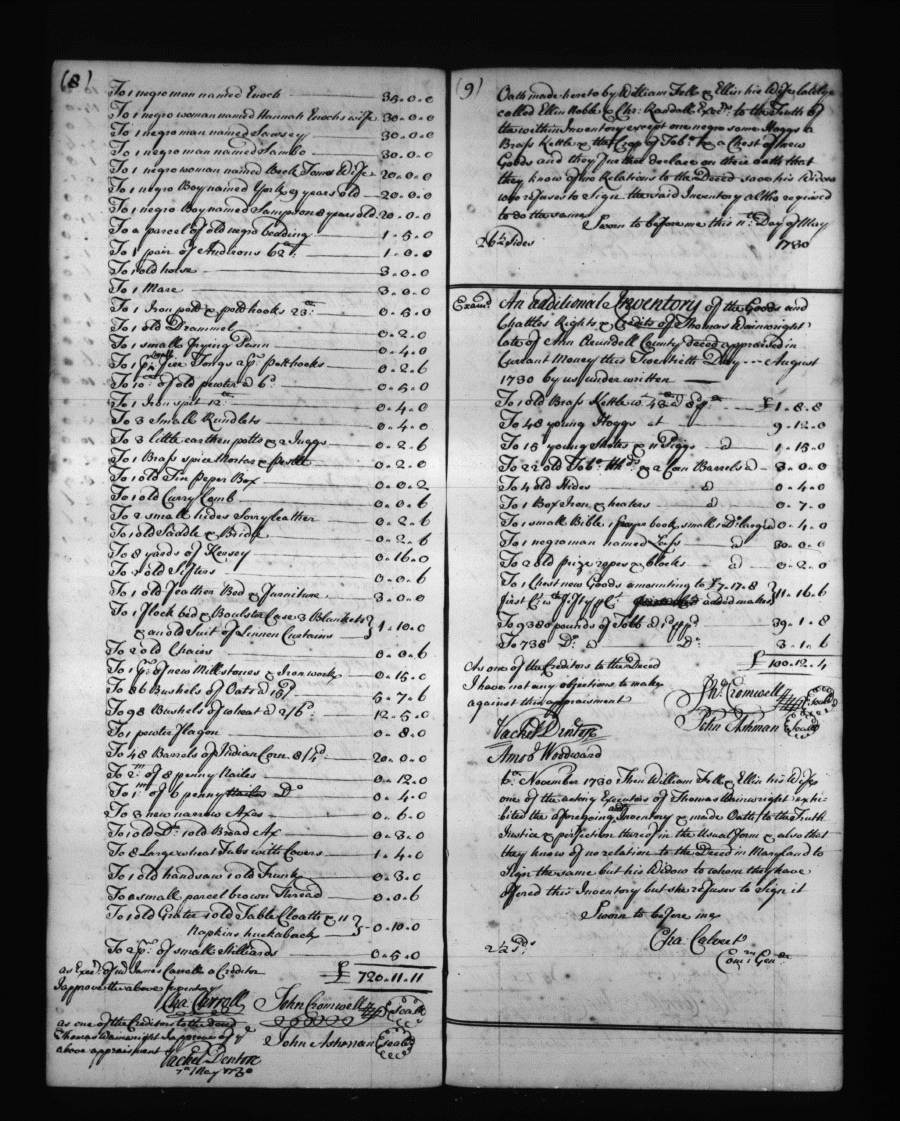 (8)
To 1 negro man named Enoch 35..0..0
To 1 negro woman named Hannah Enochs wife 30..0..0
To 1 negro man named Sawsey 30..0..0
To 1 negro man named Sambo 30..0..0
To 1 negro woman named Beck Toms Wife 20..0..0
To 1 negro Boy named York 9 years old 20..0..0
To 1 negro Boy named Sampson 8 years old 20..0..0
To a parcel of old negro bedding 1..5..0
To 1 pair of Andirons 62 lb 1..0..0
To 1 old horse 3..0..0
To 1 Mare 3..0..0
To 1 Iron pott & pott hooks 0..5..0
To 1 old Drammel 0..2..0
To 1 small frying Pann 0..4..0
To 1 pr Fire Tongs a pr potthooks 0..2..6
To 10 lb of old pewter a 6d 0..5..0
To 1 Iron spit 12 lb 0..4..0
To 3 Small Rundlets 0..4..0
To 3 little earthen potts & 2 Juggs 0..2..6
To 1 Brass spice Mortar & pestle 0..2..0
To 1 old Tin Peper Box 0..0..2
To 1 old Curry Comb 0..0..6
To 2 small hides Sorry leather 0..2..6
To 1 old Saddle & Bridle 0..2..6
To 8 yards of Kersey 0..16..0
To 2 old Sifters 0..0..6
To 1 old feather Bed & furniture 3..0..0
To 1 flock bed & Boulster Case 3 Blankets
& an old Suit of Linnen Curtains } 1..10..0
To 2 old Chairs 0..0..6
To 1 pr of new Millstones & Iron work 0..15..0
To 86 Bushels of Oats a 15d 5..7..6
To 98 Bushels of wheat a 2/6 12..5..0
To 1 pewter flagon 0..8..0
To 48 Barrels of Indian Corn 8/4d 20..0..0
To 2m of 8 penny Nailes 0..12..0
To 1m of 6 penny Do 0..4..0
To 3 new narrow Axes 0..6..0
To 1 old Do 1 old Broad Ax 0..3..0
To 8 Large wheat Tubs with Covers 1..4..0
To 1 old handsaw 1 old Trunk 0..3..0
To a small parcel brown Thread 0..0..6
To 1 old Grater 1 old Table Cloath & 11
Napkins huckaback } 0..10..0
To 2 pr of small Stilliards 0..5..0
£ 720..11..11
as Exer of Mr James Carroll a Creditor
I approve the above Inventory
Cha Carroll John Cromwell Seale
as one of the Creditors to the deced
Thomas Wainwright I approve of ye
above appraisment John Ashman Seale
Vachel Denton
7th May 1730
(9)
Oath made hereto by William Fell & Ellin his Wife lately
called Ellin Noble & Chr: Randall Exers to the Truth of
the within Inventory except one negro some Hoggs a
Brass Kettle & the Crop of Tobo & a Chest of new
Goods and they further declare on their oath that
they know of no Relations to the Deced save his Widow
who refuses to Sign the said Inventory altho required
to do the same
Sworn to before me this 11th Day of May
26½ sides 1730
Examd An additional Inventory of the Goods and
Chattles Rights & Credits of Thomas Wainwright
late of Ann Arundell County Deced appraised in
Currant Money this Twentieth Day --- August
1730 by us underwritten
To 1 old Brass Kettle wt £1..8..8
To 48 young Hoggs at 9..12..0
To 15 young Shotes & 11 Piggs a 1..15..0
To 22 old Tobo Hhds & 2 Corn Barrels a 3..0..0
To 4 old Hides a 0..4..0
To 1 Box Iron & heaters a 0..7..0
To 1 small Bible 1 prayer book small 1 Do large a 0..4..0
To 1 negro man named a 30..0..0
To 2 old prize ropes & blocks a 0..2..0
To 1 Chest new Goods amounting to £7..17..8
first Ct wth fifty pCt added makes } 11..16..6
To 9380 pounds of Tobb a 39..1..8
To 738 Do a Do 3..1..6
£100..12..4
As one of the Creditors to the Deced
I have not any objections to make
against this appraisment
Jno Cromwell Seale
Vachel Denton John Ashman Seale
Amos Woodward
6th November 1730 Then William Fell & Ellin his Wife
one of the acting Executors of Thomas Wainwright exhi-
bited the aforegoing addl Inventory & made Oath to the Truth
Justice & perfection thereof in the Usual form & also that
they know of no relation to the Deced in Maryland to
Sign the same but his Widow to whom they have
offered this Inventory but she refuses to Sign it
Sworn to before me
2½ Sds Cha Calvert
Comry Genll